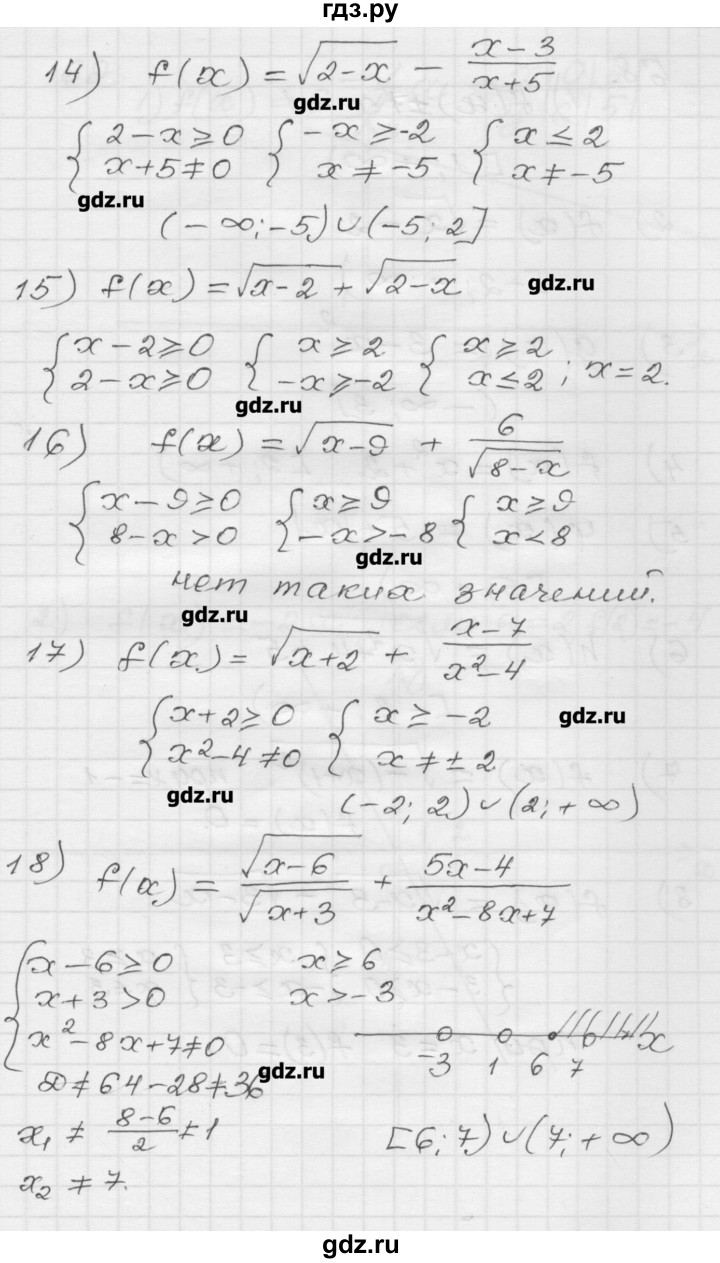 гдз.ру
14) f(x) = √(2-x) - (x-3)/(x+5)
gdz.ru
{ 2-x ≥ 0 { -x ≥ -2 { x ≤ 2
{ x+5 ≠ 0 { x ≠ -5 { x ≠ -5
gdz.ru
(-∞; -5) ∪ (-5; 2]
15) f(x) = √(x-2) + √(2-x)
gdz.ru
{ x-2 ≥ 0 { x ≥ 2 { x ≥ 2
{ 2-x ≥ 0 { -x ≥ -2 { x ≤ 2 ; x = 2.
gdz.ru
16) f(x) = √(x-9) + 6/√(8-x)
{ x-9 ≥ 0 { x ≥ 9 { x ≥ 9
{ 8-x > 0 { -x > -8 { x < 8
gdz.ru
нет таких значений.
gdz.ru
17) f(x) = √(x+2) + (x-7)/(x²-4)
{ x+2 ≥ 0 { x ≥ -2
gdz.ru
{ x²-4 ≠ 0 { x ≠ ±2
gdz.ru
(-2; 2) ∪ (2; +∞)
18) f(x) = √(x-6)/√(x+3) + (5x-4)/(x²-8x+7)
{ x-6 ≥ 0 x ≥ 6
{ x+3 > 0 x > -3
{ x²-8x+7 ≠ 0
-3 1 6 7 x
D ≠ 64-28 ≠ 36
gdz.ru
x₁ ≠ (8-6)/2 ≠ 1
[6; 7) ∪ (7; +∞)
x₂ ≠ 7.
gdz.ru